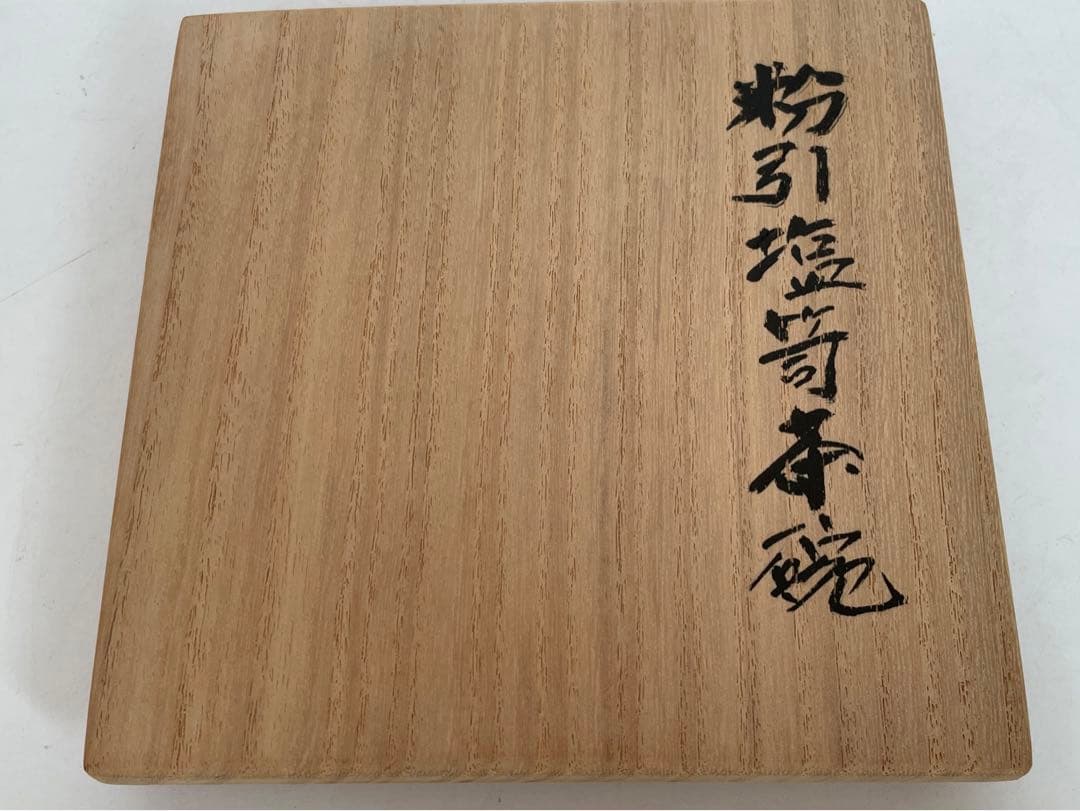 粉引塩笥茶碗